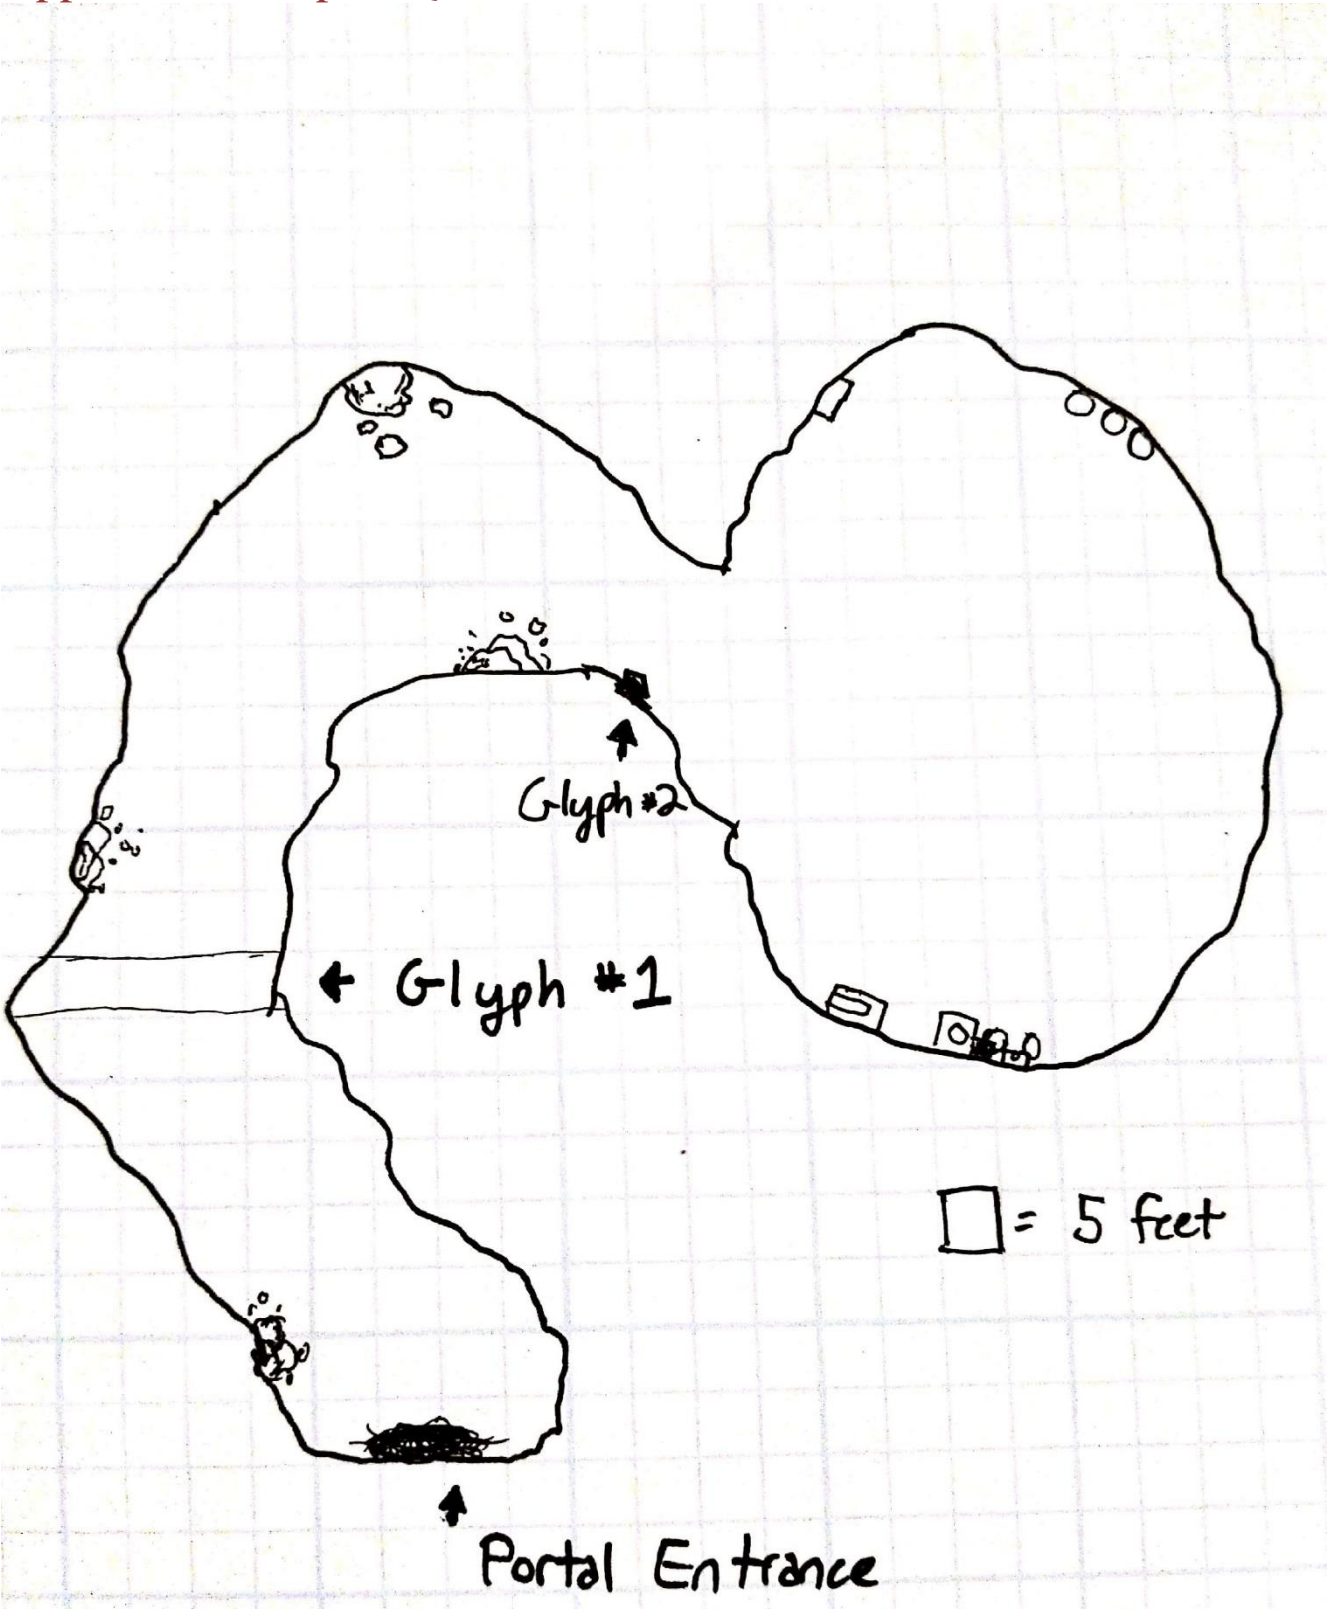 Glyph #2
Glyph #1
= 5 feet
Portal Entrance